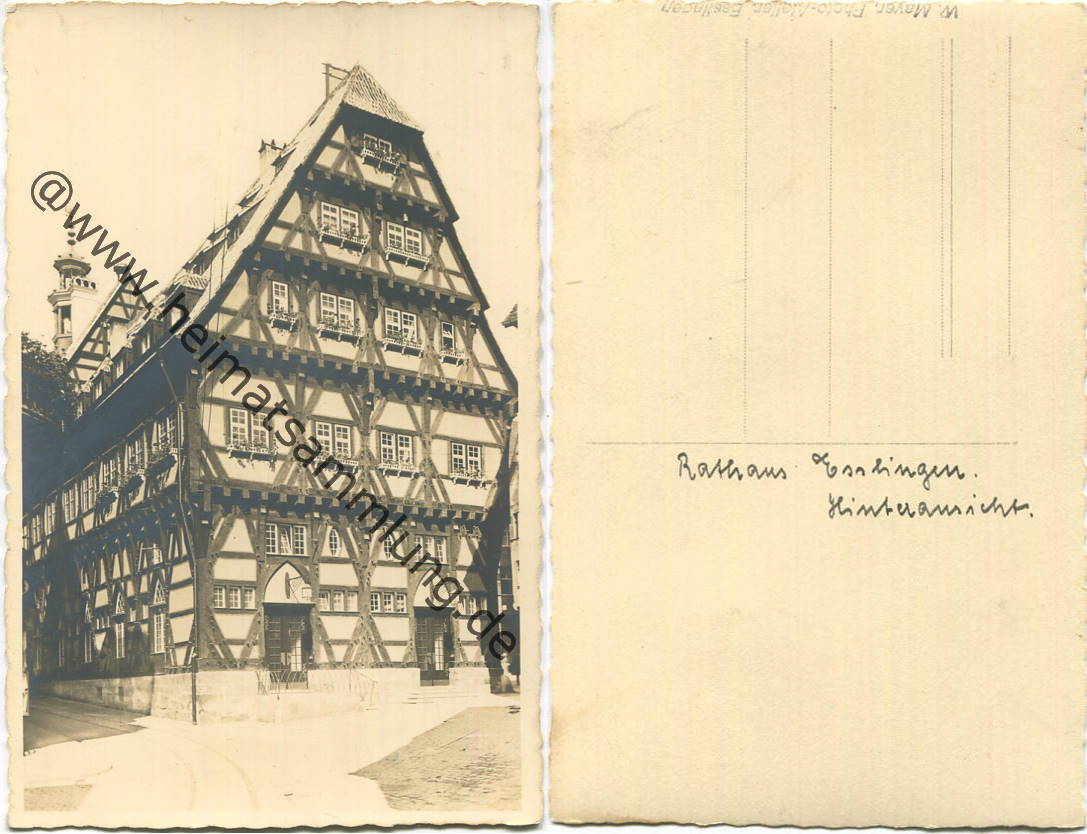 @www.heimatsammlung.de
W. Mayer, Photo-Atelier, Esslingen
Rathaus Esslingen.
Hinteransicht.